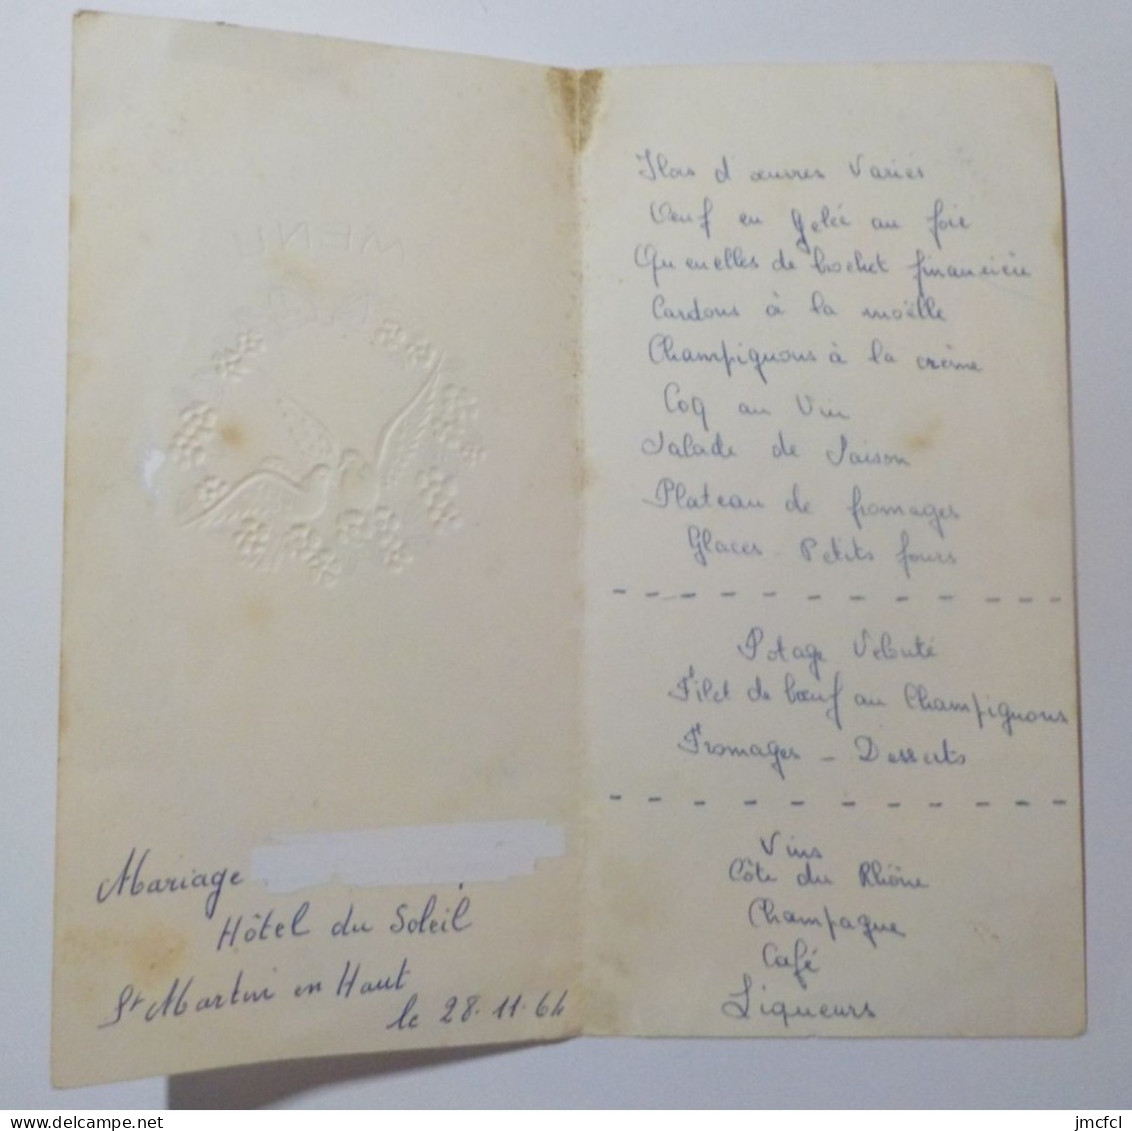 MENU
Mariage
Hôtel du Soleil
St Martin en Haut
le 28.11.64
Hors d'œuvres Variés
Oeuf en gelée au foie
Quenelles de brochet financière
Cardons à la moëlle
Champignons à la crème
Coq au Vin
Salade de Saison
Plateau de fromages
Glaces - Petits fours
Potage Velouté
Filet de bœuf au Champignons
Fromages - Desserts
Vins
Côte du Rhône
Champagne
Café
Liqueurs
delcampe.net
jmcfcl